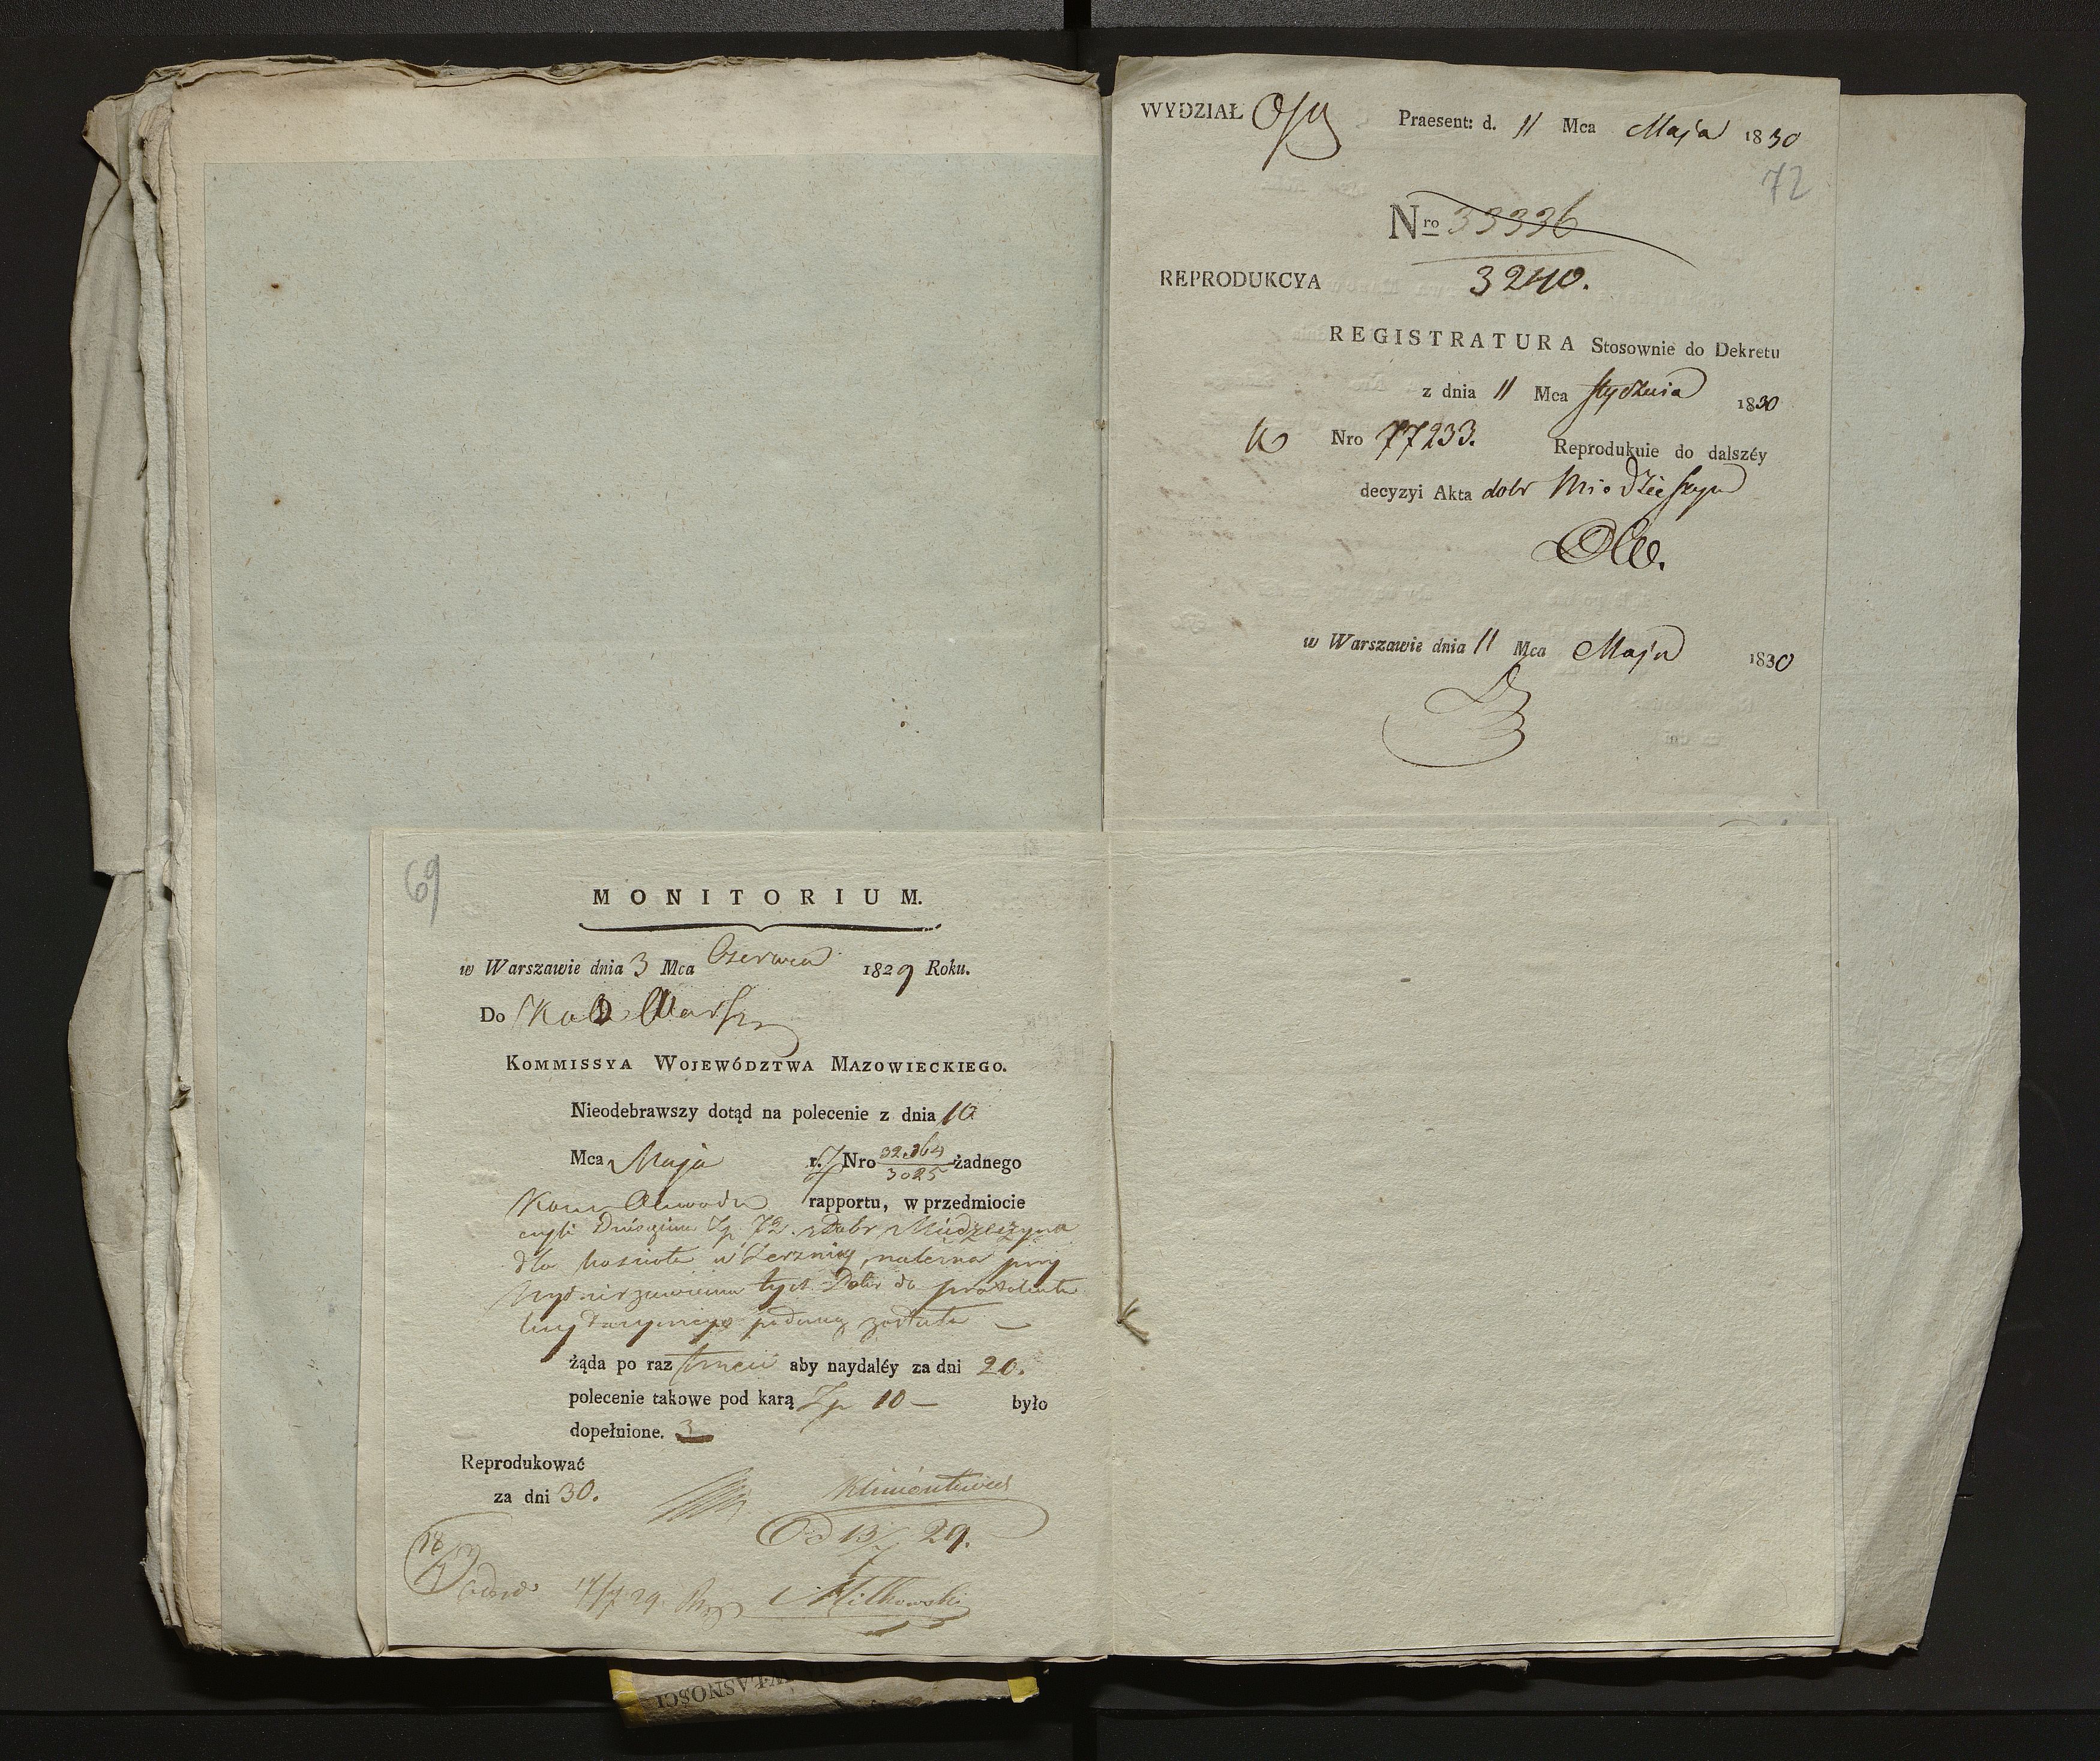 69
MONITORIUM.
w Warszawie dnia 3 Mca Czerwca 1829 Roku.
Do
KOMMISSYA WOJEWÓDZTWA MAZOWIECKIEGO.
Nieodebrawszy dotąd na polecenie z dnia 10
Mca Maja r. Nro 32364/3025 żadnego
rapportu, w przedmiocie
czyli Zp. 72. z Dobr Miedzeszyna
dla kościoła w Zerzniu należna przy
wydzierzawieniu tych Dobr do protokułu
licytacyinego podaną została —
żąda po raz trzeci aby naydaléy za dni 20.
polecenie takowe pod karą Zp 10 — było
dopełnione. 3
Reprodukować
za dni 30.
Klimontowicz
Od 13/7 29.
17/7 29. Miłkowski
WŁASNOŚCI
WYDZIAŁ Praesent: d. 11 Mca Maja 1830
72
Nro 33336
3240.
REPRODUKCYA
REGISTRATURA Stosownie do Dekretu
z dnia 11 Mca Stycznia 1830
Nro 77233. Reprodukuie do dalszéy
decyzyi Akta dobr Miedzieszyn
w Warszawie dnia 11 Mca Maja 1830